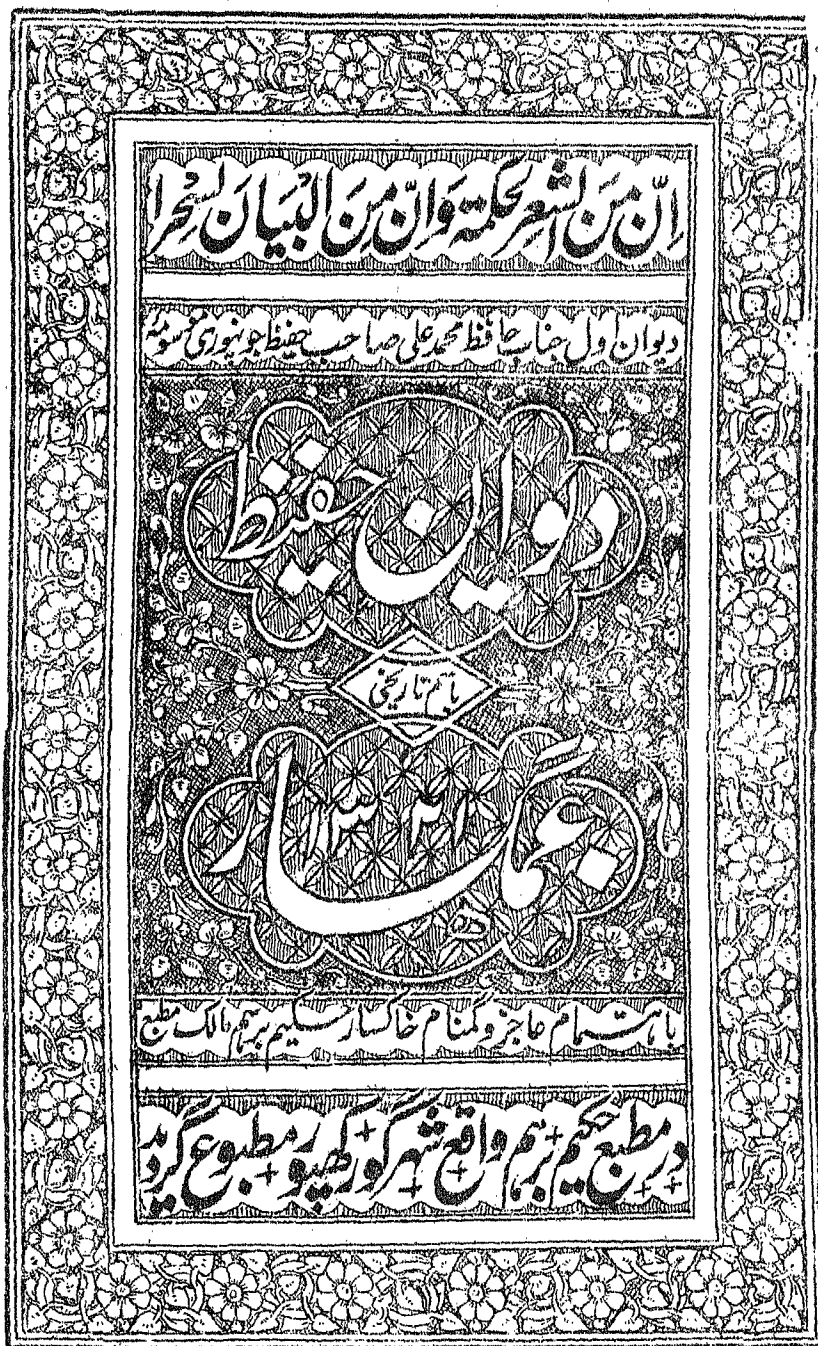 اِنَّ مِنَ الشِّعرِ لحکمۃ وَاِنَّ مِنَ البَیَانِ لسِحْرا
دیوان اول جناب حافظ محمد علی صاحب حفیظ جونپوری موسومہ
دیوان حفیظ
باسم تاریخی
غمگسار
۱۳۲۱ھ
باہتمام عاجز و گمنام خاکسار حکیم برہم مالک مطبع
در مطبع حکیم برہم واقع شہر گورکھپور مطبوع گردید